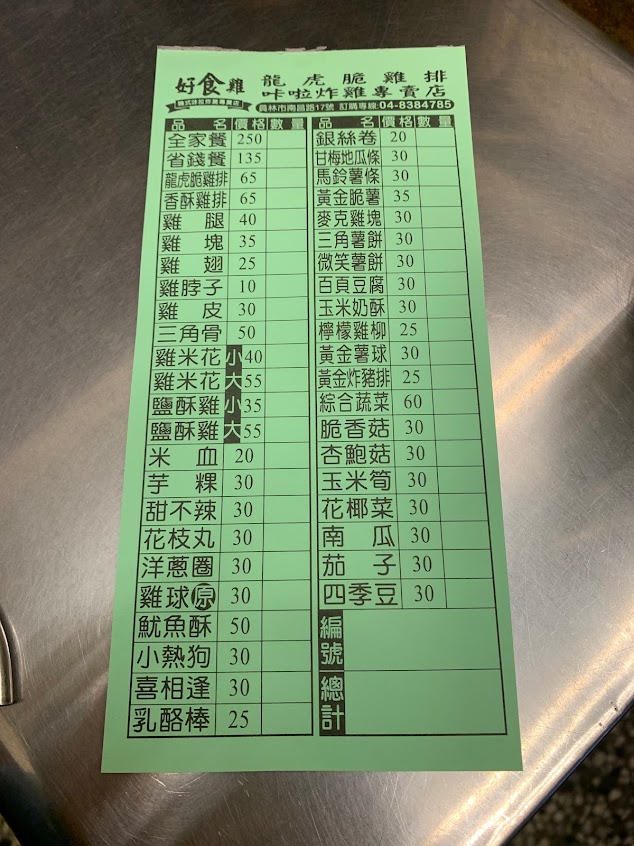 好食雞
龍虎脆雞排
咔啦炸雞專賣店
員林市南昌路17號 訂購專線:04-8384785
品名 價格 數量
全家餐 250
省錢餐 135
龍虎脆雞排 65
香酥雞排 65
雞腿 40
雞塊 35
雞翅 25
雞脖子 10
雞皮 30
三角骨 50
雞米花 小 40
雞米花 大 55
鹽酥雞 小 35
鹽酥雞 大 55
米血 20
芋粿 30
甜不辣 30
花枝丸 30
洋蔥圈 30
雞球 原 30
魷魚酥 50
小熱狗 30
喜相逢 30
乳酪棒 25
品名 價格 數量
銀絲卷 20
甘梅地瓜條 30
馬鈴薯條 30
黃金脆薯 35
麥克雞塊 30
三角薯餅 30
微笑薯餅 30
百頁豆腐 30
玉米奶酥 30
檸檬雞柳 25
黃金薯球 30
黃金炸豬排 25
綜合蔬菜 60
脆香菇 30
杏鮑菇 30
玉米筍 30
花椰菜 30
南瓜 30
茄子 30
四季豆 30
編號
總計